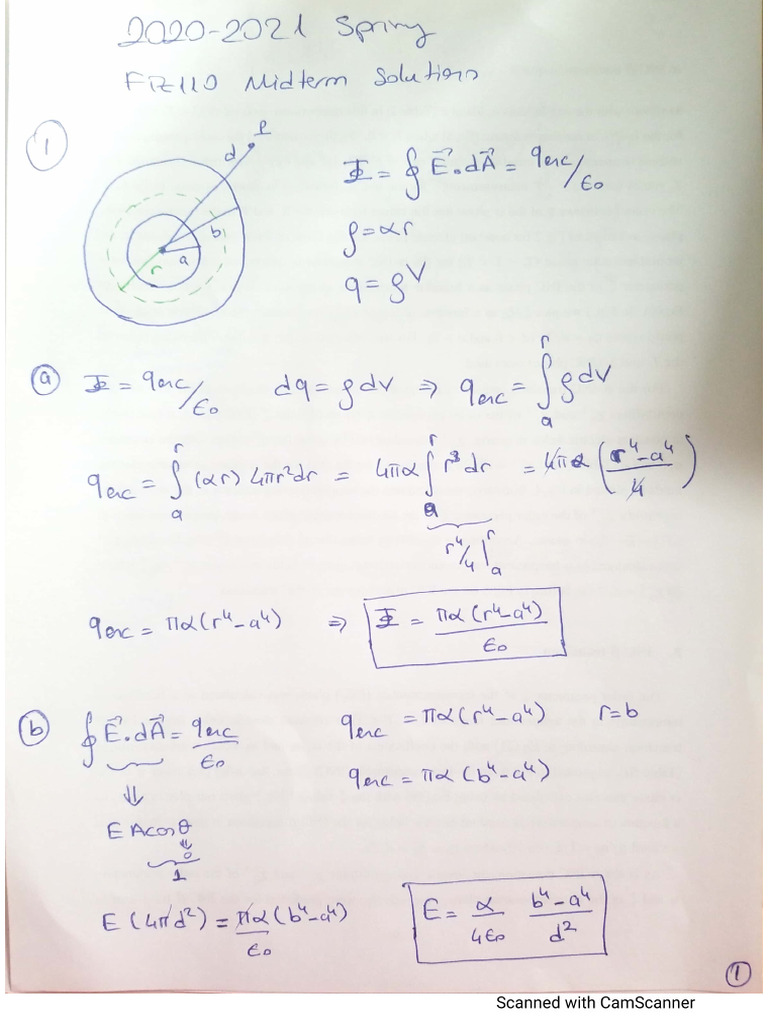 2020-2021 Spring
FIZ110 Midterm Solutions
1
P
d
b
a
r
Φ = ∮ E⃗.dA⃗ = qenc/ε0
ρ = αr
q = ρV
a Φ = qenc/ε0 dq = ρdV ⇒ qenc = ∫_a^r ρdV
qenc = ∫_a^r (αr) 4πr²dr = 4πα ∫_a^r r³dr = 4πα ((r⁴-a⁴)/4)
r⁴/4 |_a^r
qenc = πα(r⁴-a⁴) ⇒ Φ = πα(r⁴-a⁴)/ε0
b ∮ E⃗.dA⃗ = qenc/ε0 qenc = πα(r⁴-a⁴) r=b
qenc = πα(b⁴-a⁴)
⇓
E A cosθ
⇓
0
1
E(4πd²) = πα(b⁴-a⁴)/ε0 E = α/4ε0 (b⁴-a⁴)/d²
1
Scanned with CamScanner